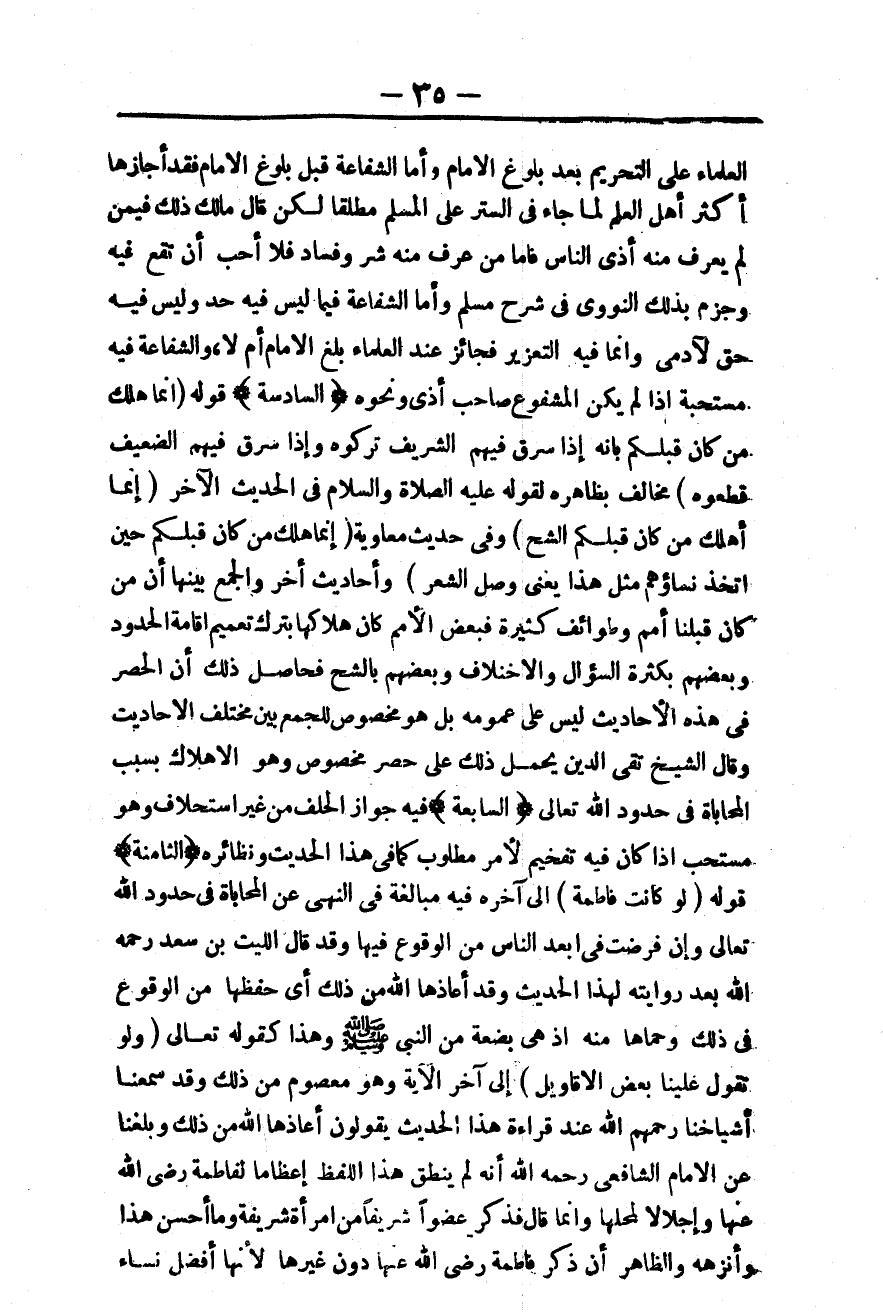 — ٣٥ —
العلماء على التحريم بعد بلوغ الامام وأما الشفاعة قبل بلوغ الامام فقد أجازها
أكثر أهل العلم لما جاء فى الستر على المسلم مطلقا لكن قال مالك ذلك فيمن
لم يعرف منه أذى الناس فاما من عرف منه شر وفساد فلا أحب أن تقع فيه
وجزم بذلك النووى فى شرح مسلم وأما الشفاعة فيما ليس فيه حد وليس فيه
حق لآدمى وانما فيه التعزير فجائز عند العلماء بلغ الامام أم لا، والشفاعة فيه
مستحبة اذا لم يكن المشفوع صاحب أذى ونحوه ﴿ السادسة ﴾ قوله (انما هلك
من كان قبلكم بانه إذا سرق فيهم الشريف تركوه وإذا سرق فيهم الضعيف
قطعوه ) مخالف بظاهره لقوله عليه الصلاة والسلام فى الحديث الآخر ( إنما
أهلك من كان قبلكم الشح ) وفى حديث معاوية ( إنما هلك من كان قبلكم حين
اتخذ نساؤهم مثل هذا يعنى وصل الشعر ) وأحاديث أخر والجمع بينها أن من
كان قبلنا أمم وطوائف كثيرة فبعض الأمم كان هلاكها بترك تعميم اقامة الحدود
وبعضهم بكثرة السؤال والاختلاف وبعضهم بالشح فحاصل ذلك أن الحصر
فى هذه الأحاديث ليس على عمومه بل هو مخصوص للجمع بين مختلف الاحاديث
وقال الشيخ تقى الدين يحمل ذلك على حصر مخصوص وهو الاهلاك بسبب
المحاباة فى حدود الله تعالى ﴿ السابعة ﴾ فيه جواز الحلف من غير استحلاف وهو
مستحب اذا كان فيه تفخيم لأمر مطلوب كما فى هذا الحديث ونظائره ﴿الثامنة﴾
قوله ( لو كانت فاطمة ) الى آخره فيه مبالغة فى النهى عن المحاباة فى حدود الله
تعالى وإن فرضت فى ابعد الناس من الوقوع فيها وقد قال الليث بن سعد رحمه
الله بعد روايته لهذا الحديث وقد أعاذها الله من ذلك أى حفظها من الوقوع
فى ذلك وحماها منه اذ هى بضعة من النبى ﷺ وهذا كقوله تعالى ( ولو
تقول علينا بعض الاقاويل ) إلى آخر الآية وهو معصوم من ذلك وقد سمعنا
أشياخنا رحمهم الله عند قراءة هذا الحديث يقولون أعاذها الله من ذلك وبلغنا
عن الامام الشافعى رحمه الله أنه لم ينطق هذا اللفظ إعظاما لفاطمة رضى الله
عنها وإجلالا لمحلها وانما قال فذكر عضواً شريفاً من امرأة شريفة وما أحسن هذا
وأنزهه والظاهر أن ذكر فاطمة رضى الله عنها دون غيرها لأنها أفضل نساء